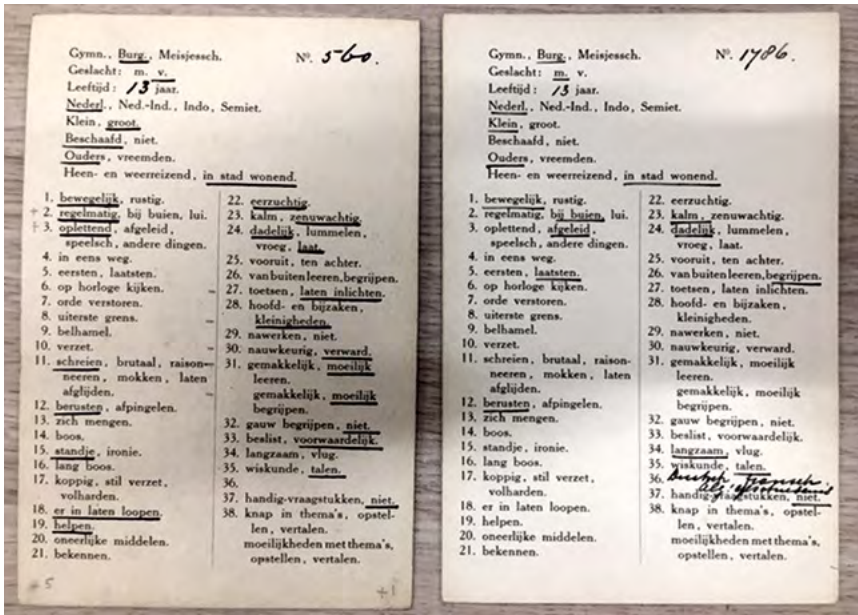 Gymn., Burg., Meisjessch. Nº. 560.
Geslacht: m. v.
Leeftijd: 13 jaar.
Nederl., Ned.-Ind., Indo, Semiet.
Klein, groot.
Beschaafd, niet.
Ouders, vreemden.
Heen- en weerreizend, in stad wonend.
1. bewegelijk, rustig.
+ 2. regelmatig, bij buien, lui.
+ 3. oplettend, afgeleid,
speelsch, andere dingen.
4. in eens weg.
5. eersten, laatsten.
6. op horloge kijken.
7. orde verstoren.
8. uiterste grens.
9. belhamel.
10. verzet.
11. schreien, brutaal, raison-
neeren, mokken, laten
afglijden.
12. berusten, afpingelen.
13. zich mengen.
14. boos.
15. standje, ironie.
16. lang boos.
17. koppig, stil verzet,
volharden.
18. er in laten loopen.
19. helpen.
20. oneerlijke middelen.
21. bekennen.
+5
22. eerzuchtig.
23. kalm, zenuwachtig.
24. dadelijk, lummelen,
vroeg, laat.
25. vooruit, ten achter.
26. van buiten leeren, begrijpen.
27. toetsen, laten inlichten.
28. hoofd- en bijzaken,
kleinigheden.
29. nawerken, niet.
30. nauwkeurig, verward.
31. gemakkelijk, moeilijk
leeren.
gemakkelijk, moeilijk
begrijpen.
32. gauw begrijpen, niet.
33. beslist, voorwaardelijk.
34. langzaam, vlug.
35. wiskunde, talen.
36.
37. handig-vraagstukken, niet.
38. knap in thema's, opstel-
len, vertalen.
moeilijkheden met thema's,
opstellen, vertalen.
+1
Gymn., Burg., Meisjessch. Nº. 1786.
Geslacht: m. v.
Leeftijd: 13 jaar.
Nederl., Ned.-Ind., Indo, Semiet.
Klein, groot.
Beschaafd, niet.
Ouders, vreemden.
Heen- en weerreizend, in stad wonend.
1. bewegelijk, rustig.
2. regelmatig, bij buien, lui.
3. oplettend, afgeleid,
speelsch, andere dingen.
4. in eens weg.
5. eersten, laatsten.
6. op horloge kijken.
7. orde verstoren.
8. uiterste grens.
9. belhamel.
10. verzet.
11. schreien, brutaal, raison-
neeren, mokken, laten
afglijden.
12. berusten, afpingelen.
13. zich mengen.
14. boos.
15. standje, ironie.
16. lang boos.
17. koppig, stil verzet,
volharden.
18. er in laten loopen.
19. helpen.
20. oneerlijke middelen.
21. bekennen.
22. eerzuchtig.
23. kalm, zenuwachtig.
24. dadelijk, lummelen,
vroeg, laat.
25. vooruit, ten achter.
26. van buiten leeren, begrijpen.
27. toetsen, laten inlichten.
28. hoofd- en bijzaken,
kleinigheden.
29. nawerken, niet.
30. nauwkeurig, verward.
31. gemakkelijk, moeilijk
leeren.
gemakkelijk, moeilijk
begrijpen.
32. gauw begrijpen, niet.
33. beslist, voorwaardelijk.
34. langzaam, vlug.
35. wiskunde, talen.
36. Duitsch, Fransch
37. handig-vraagstukken, niet.
38. knap in thema's, opstel-
len, vertalen.
moeilijkheden met thema's,
opstellen, vertalen.